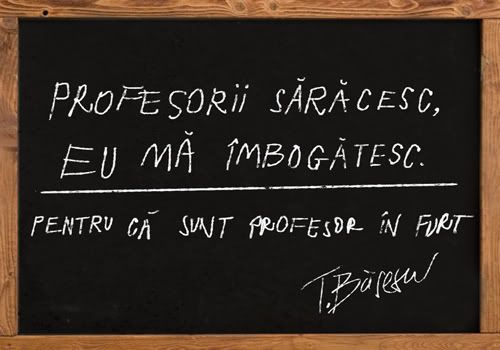 PROFESORII SĂRĂCESC,
EU MĂ ÎMBOGĂTESC.
PENTRU CĂ SUNT PROFESOR ÎN FURT
T. Băsescu